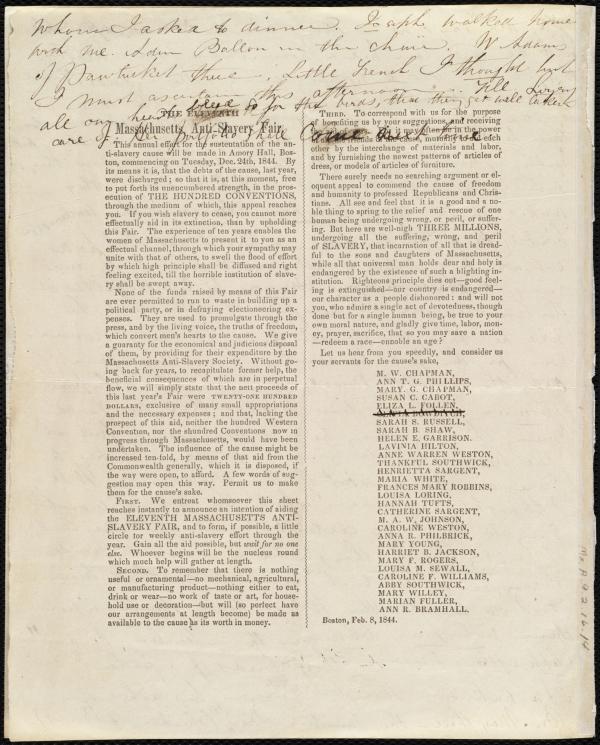 whom I asked to dinner. Joseph walked home
with me. Adin Ballou in the Chair. W Adams
of Pawtucket there. Little French I thought but
I must ascertain this afternoon. Tell
all our heart bleed so for the birds, that they get well taken
care of.
THE ELEVENTH
Massachusetts Anti-Slavery Fair.
This annual effort for the sustentation of the an-
ti-slavery cause will be made in Amory Hall, Bos-
ton, commencing on Tuesday, Dec. 24th, 1844. By
its means it is, that the debts of the cause, last year,
were discharged; so that it is, at this moment, free
to put forth its unencumbered strength, in the prose-
cution of THE HUNDRED CONVENTIONS,
through the medium of which, this appeal reaches
you. If you wish slavery to cease, you cannot more
effectually aid in its extinction, than by upholding
this Fair. The experience of ten years enables the
women of Massachusetts to present it to you as an
effectual channel, through which your sympathy may
unite with that of others, to swell the flood of effort
by which high principle shall be diffused and right
feeling excited, till the horrible institution of slave-
ry shall be swept away.
None of the funds raised by means of this Fair
are ever permitted to run to waste in building up a
political party, or in defraying electioneering ex-
penses. They are used to promulgate through the
press, and by the living voice, the truths of freedom,
which convert men's hearts to the cause. We give
a guaranty for the economical and judicious disposal
of them, by providing for their expenditure by the
Massachusetts Anti-Slavery Society. Without go-
ing back for years, to recapitulate former help, the
beneficial consequences of which are in perpetual
flow, we will simply state that the nett proceeds of
this last year's Fair were TWENTY-ONE HUNDRED
DOLLARS, exclusive of many small appropriations
and the necessary expenses; and that, lacking the
prospect of this aid, neither the hundred Western
Convention, nor the hundred Conventions now in
progress through Massachusetts, would have been
undertaken. The influence of the cause might be
increased ten-fold, by means of that aid from the
Commonwealth generally, which it is disposed, if
the way were open, to afford. A few words of sug-
gestion may open this way. Permit us to make
them for the cause's sake.
FIRST. We entreat whomsoever this sheet
reaches instantly to announce an intention of aiding
the ELEVENTH MASSACHUSETTS ANTI-
SLAVERY FAIR, and to form, if possible, a little
circle for weekly anti-slavery effort through the
year. Gain all the aid possible, but wait for no one
else. Whoever begins will be the nucleus round
which much help will gather at length.
SECOND. To remember that there is nothing
useful or ornamental—no mechanical, agricultural,
or manufacturing product—nothing either to eat,
drink or wear—no work of taste or art, for house-
hold use or decoration—but will (so perfect have
our arrangements at length become) be made as
available to the cause as its worth in money.
THIRD. To correspond with us for the purpose
of benefiting us by your suggestions, and receiving
it may often be in the power
of the friends of the cause, mutually to aid each
other by the interchange of materials and labor,
and by furnishing the newest patterns of articles of
dress, or models of articles of furniture.
There surely needs no searching argument or el-
oquent appeal to commend the cause of freedom
and humanity to professed Republicans and Chris-
tians. All see and feel that it is a good and a no-
ble thing to spring to the relief and rescue of one
human being undergoing wrong, or peril, or suffer-
ing. But here are well-nigh THREE MILLIONS,
undergoing all the suffering, wrong, and peril
of SLAVERY, that incarnation of all that is dread-
ful to the sons and daughters of Massachusetts,
while all that universal man holds dear and holy is
endangered by the existence of such a blighting in-
stitution. Righteous principle dies out—good feel-
ing is extinguished—our country is endangered—
our character as a people dishonored: and will not
you, who admire a single act of devotedness, though
done but for a single human being, be true to your
own moral nature, and gladly give time, labor, mon-
ey, prayer, sacrifice, that so you may save a nation
—redeem a race—ennoble an age?
Let us hear from you speedily, and consider us
your servants for the cause's sake,
M. W. CHAPMAN,
ANN T. G. PHILLIPS,
MARY. G. CHAPMAN,
SUSAN C. CABOT,
ELIZA L. FOLLEN,
SARAH S. RUSSELL,
SARAH B. SHAW,
HELEN E. GARRISON.
LAVINIA HILTON,
ANNE WARREN WESTON,
THANKFUL SOUTHWICK,
HENRIETTA SARGENT,
MARIA WHITE,
FRANCES MARY ROBBINS,
LOUISA LORING,
HANNAH TUFTS,
CATHERINE SARGENT,
M. A. W. JOHNSON,
CAROLINE WESTON,
ANNA R. PHILBRICK,
MARY YOUNG,
HARRIET B. JACKSON,
MARY F. ROGERS,
LOUISA M. SEWALL,
CAROLINE F. WILLIAMS,
ABBY SOUTHWICK,
MARY WILLEY,
MARIAN FULLER,
ANN R. BRAMHALL.
Boston, Feb. 8, 1844.